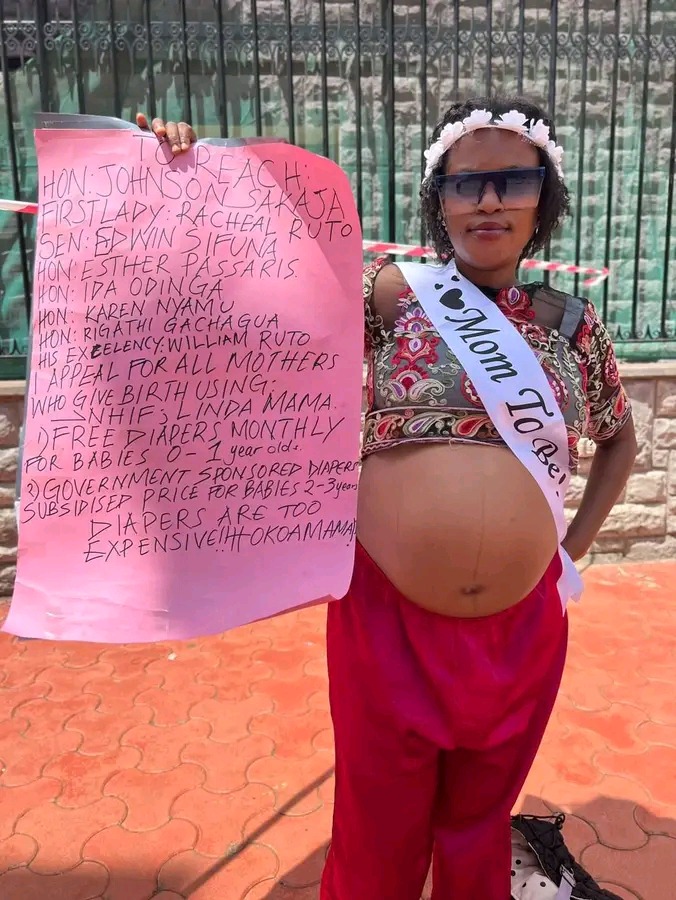 TO REACH:
HON: JOHNSON SAKAJA
FIRST LADY: RACHEAL RUTO
SEN: EDWIN SIFUNA
HON: ESTHER PASSARIS.
HON: IDA ODINGA
HON: KAREN NYAMU
HON: RIGATHI GACHAGUA
HIS EXCELENCY: WILLIAM RUTO
I APPEAL FOR ALL MOTHERS
WHO GIVE BIRTH USING:
NHIF; LINDA MAMA.
1) FREE DIAPERS MONTHLY
FOR BABIES 0-1 year olds.
2) GOVERNMENT SPONSORED DIAPERS
SUBSIDISED PRICE FOR BABIES 2-3 years
DIAPERS ARE TOO
EXPENSIVE!! #OKOAMAMA!
Mom To Be!